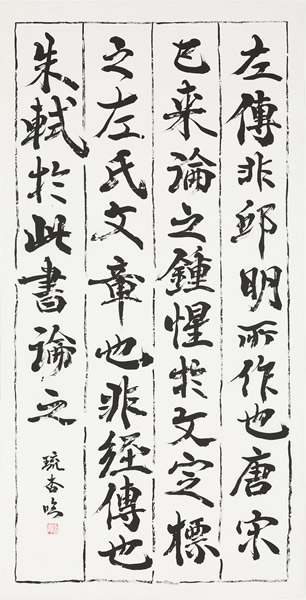 左傳非邱明所作也唐宋
已来論之鍾惺於文定標
之左氏文章也非經傳也
朱軾於此書論之
琉杏吟